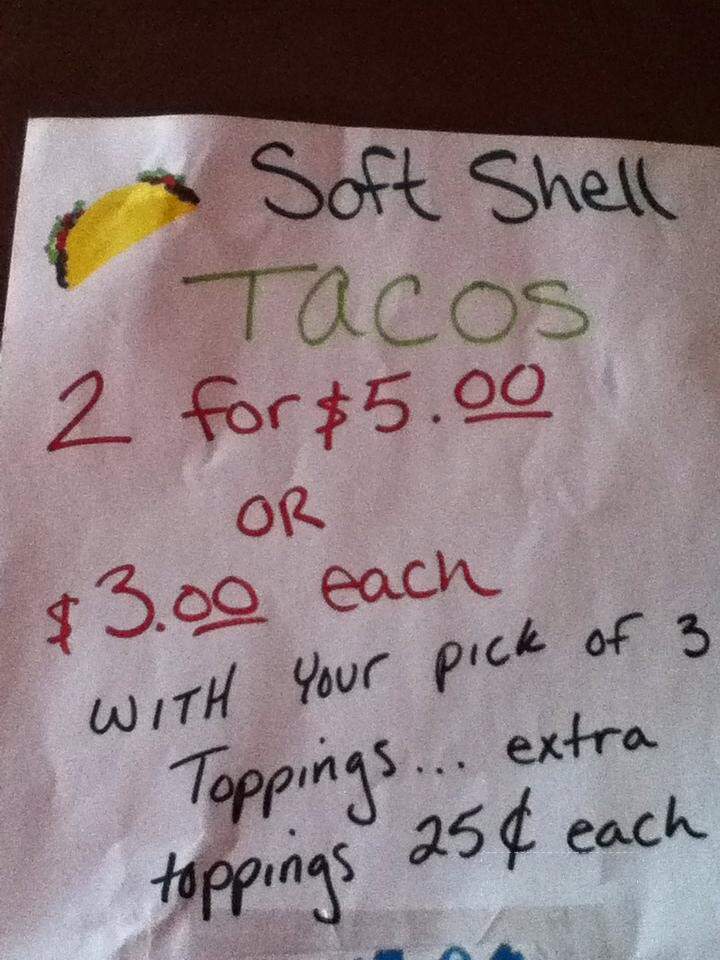 Soft Shell
TACOS
2 for $5.00
OR
$3.00 each
WITH Your pick of 3
Toppings... extra
toppings 25¢ each